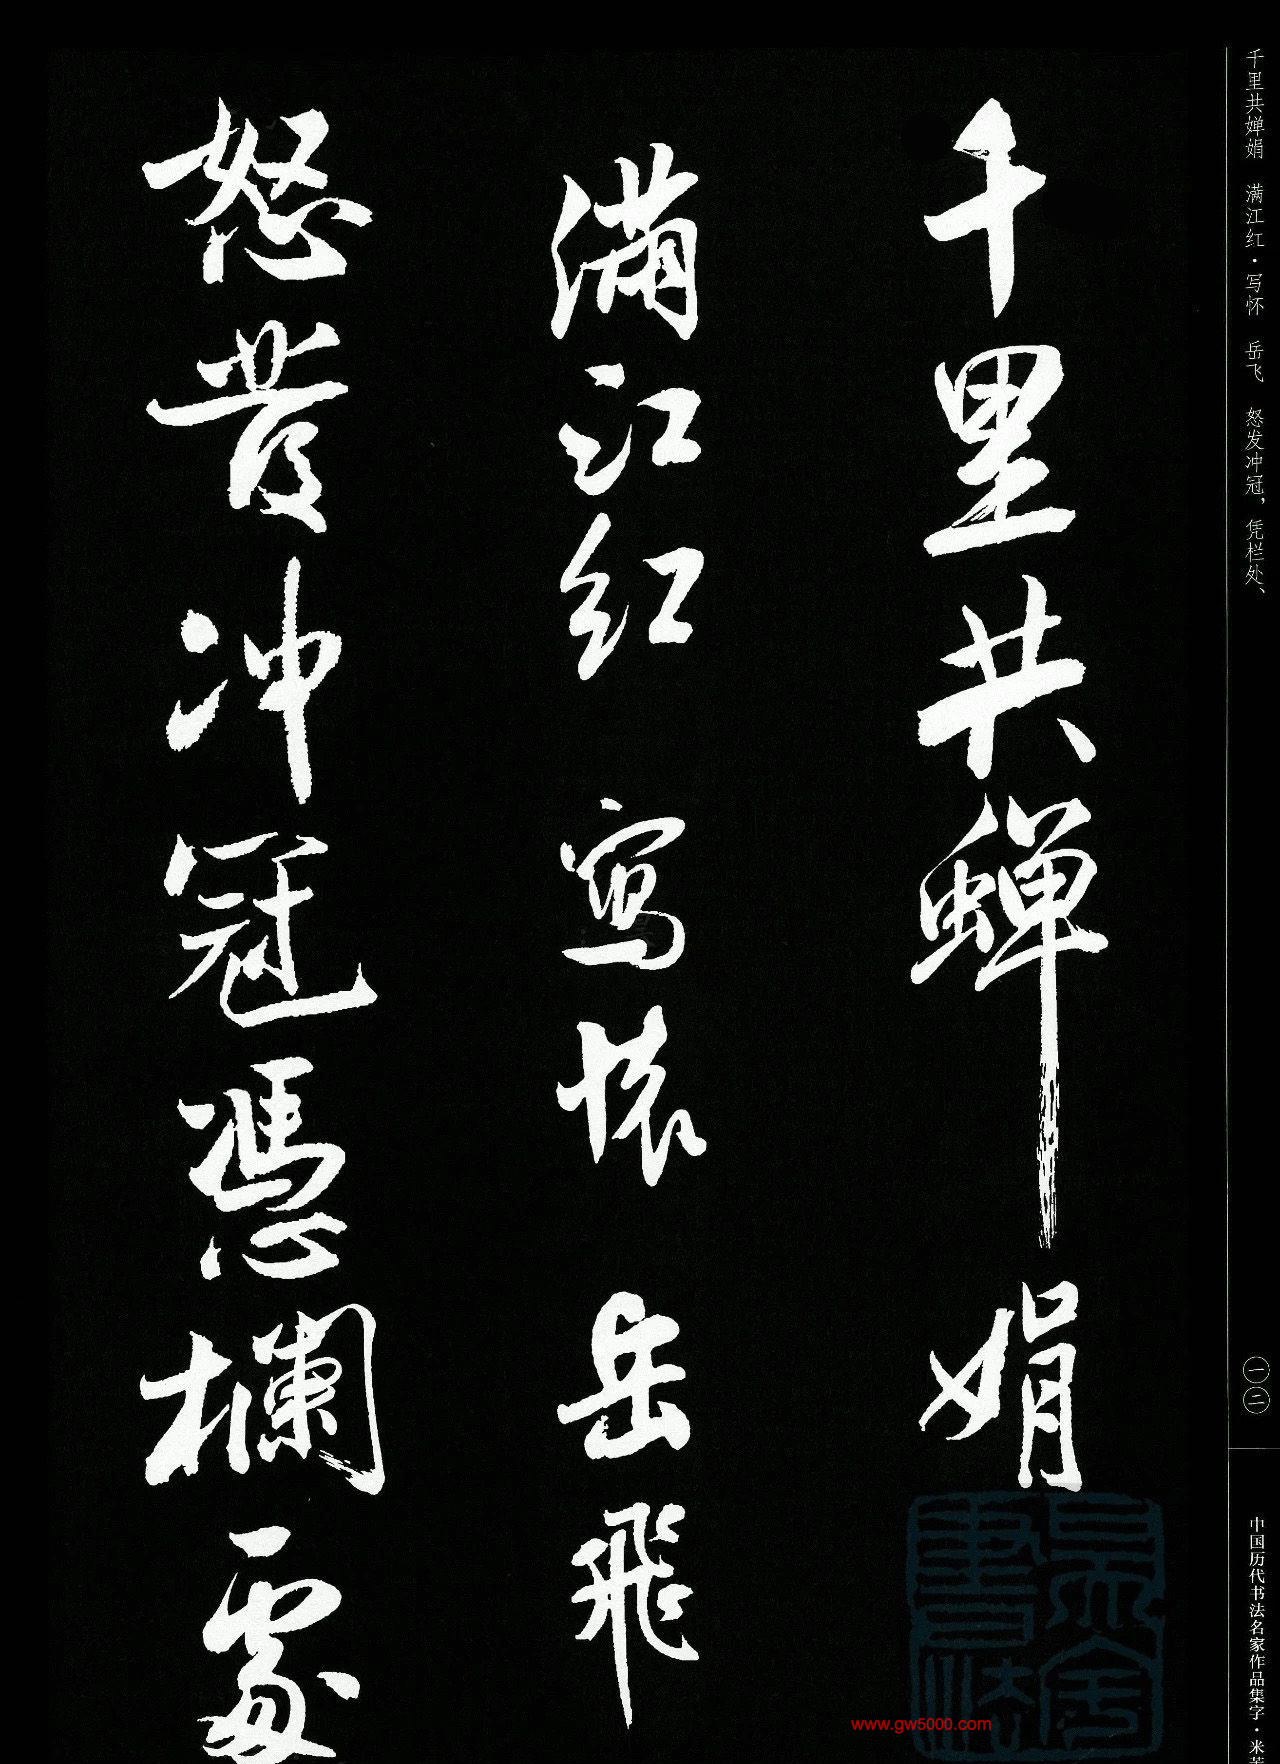 千里共蝉娟
满江红 寫懷 岳飛
怒发冲冠憑欄處
千里共婵娟 满江红·写怀 岳飞 怒发冲冠，凭栏处、
一二
中国历代书法名家作品集字·米芾
www.gw5000.com